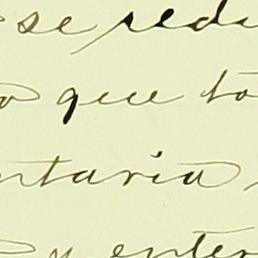 se redu
o que to
ntaria
y enter